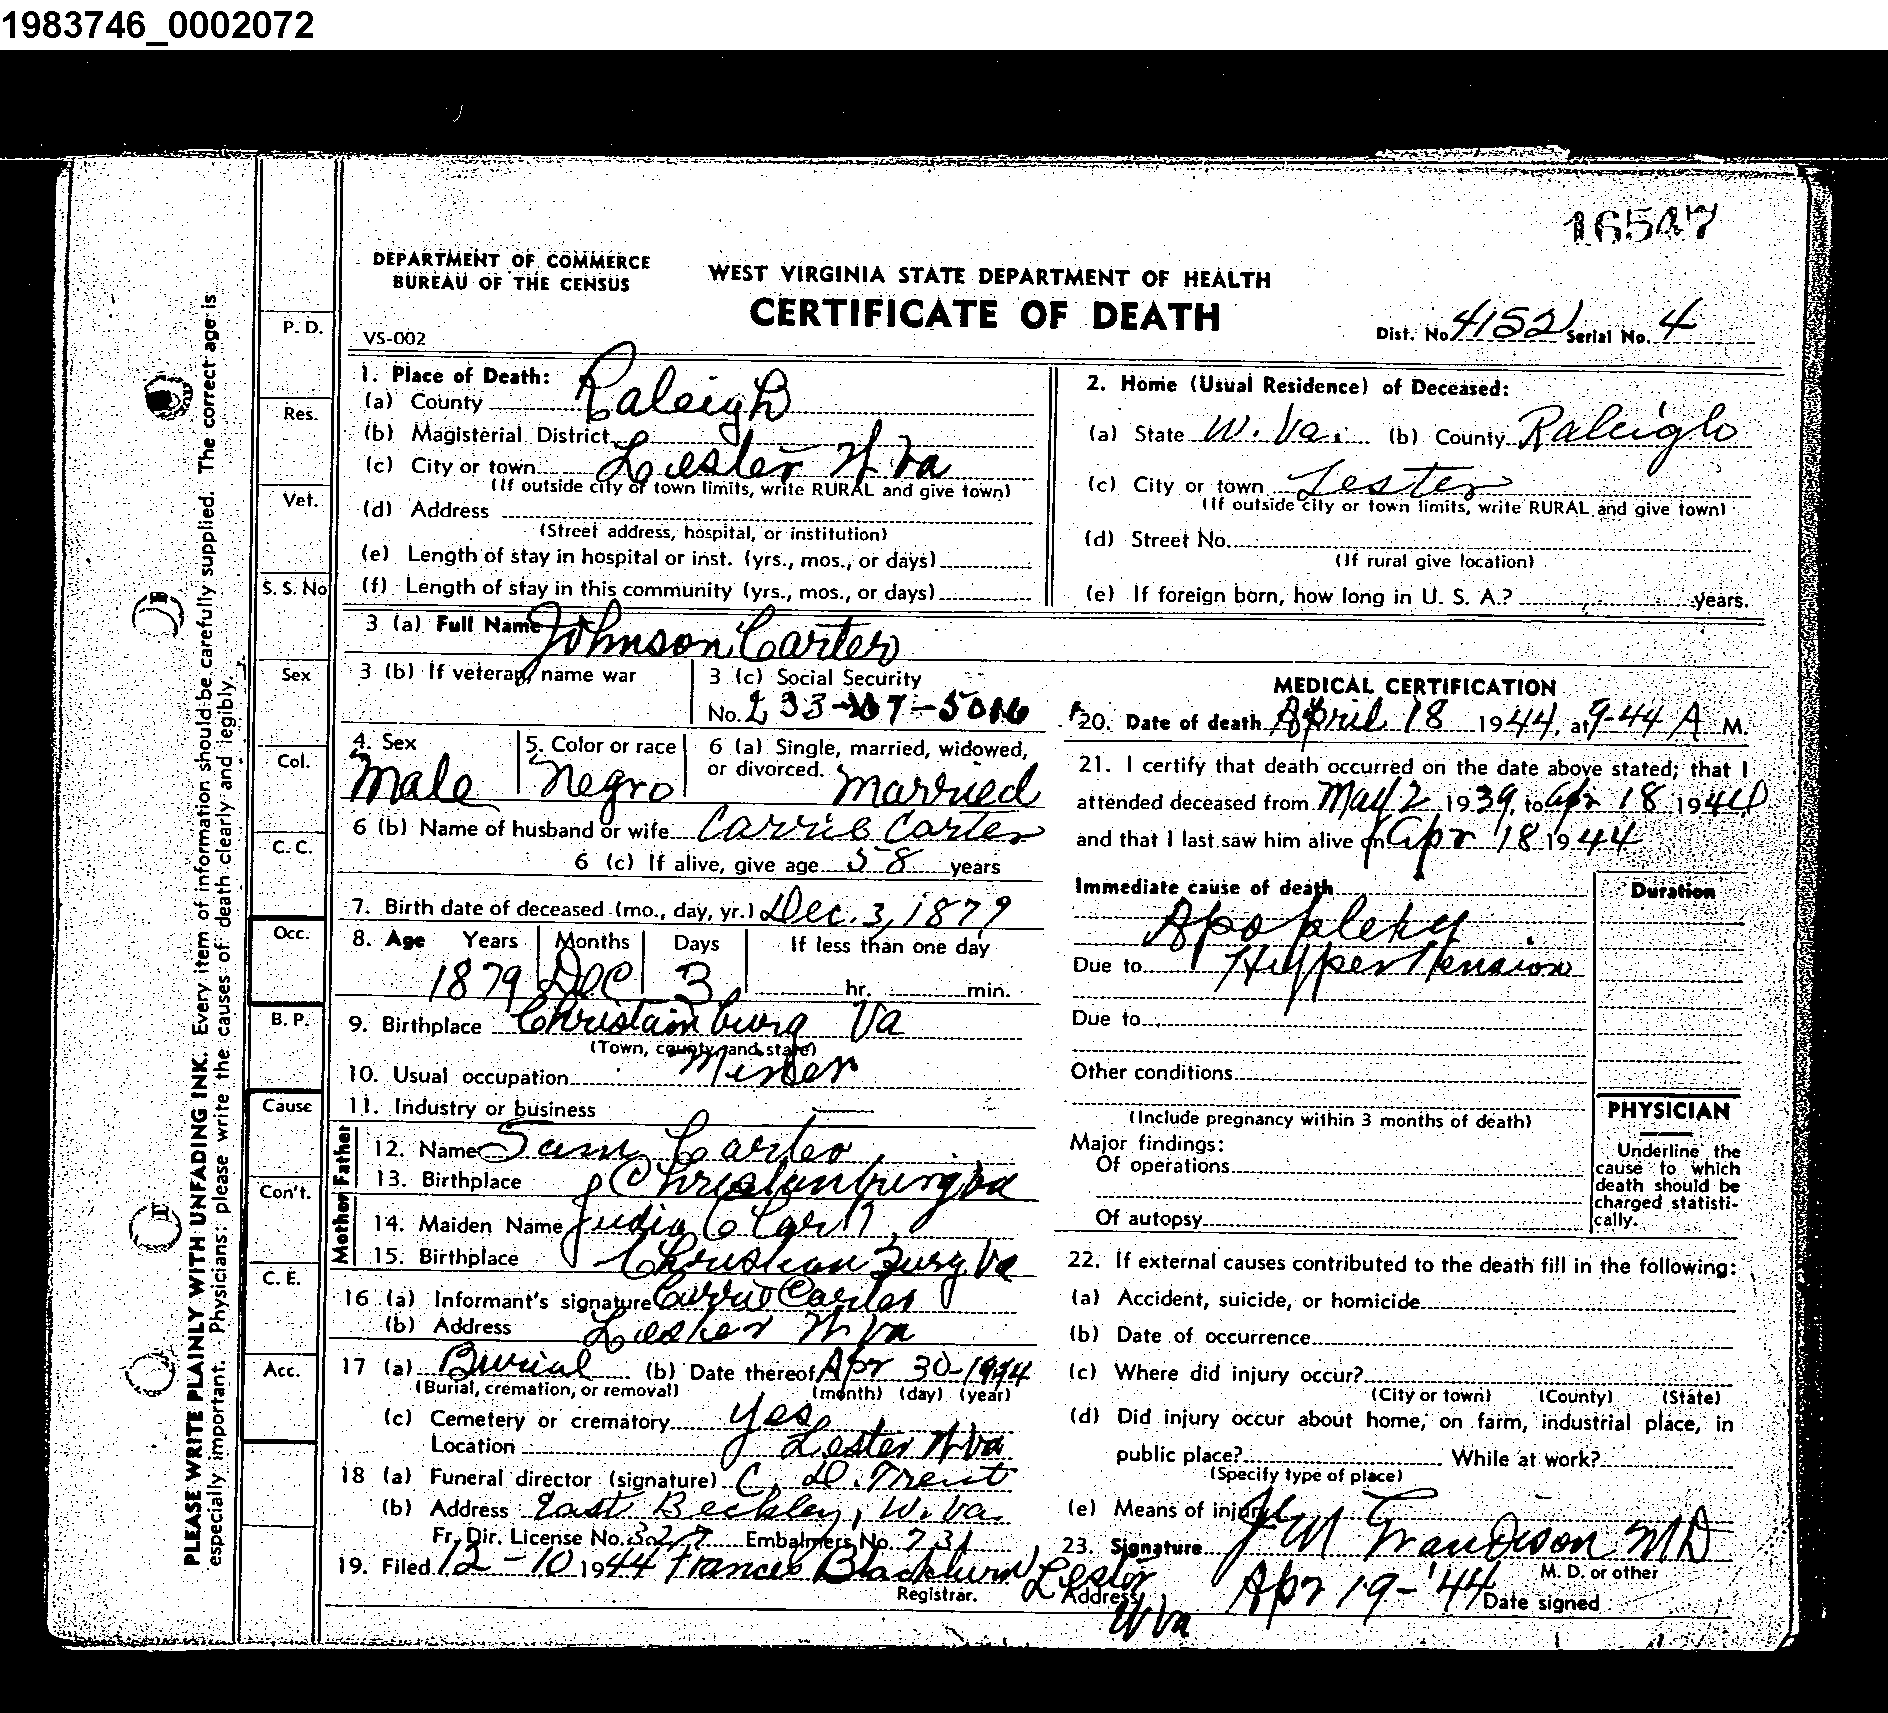 1983746_0002072
16547
DEPARTMENT OF COMMERCE
BUREAU OF THE CENSUS
WEST VIRGINIA STATE DEPARTMENT OF HEALTH
CERTIFICATE OF DEATH
VS-002
Dist. No. 4152 Serial No. 4
PLEASE WRITE PLAINLY WITH UNFADING INK. Every item of information should be carefully supplied. The correct age is
especially important. Physicians: please write the causes of death clearly and legibly.
P. D.
Res.
Vet.
S. S. No
Sex
Col.
C. C.
Occ.
B. P.
Cause
Con't.
C. E.
Acc.
1. Place of Death:
(a) County Raleigh
(b) Magisterial District
(c) City or town Lester W Va
(If outside city or town limits, write RURAL and give town)
(d) Address
(Street address, hospital, or institution)
(e) Length of stay in hospital or inst. (yrs., mos., or days)
(f) Length of stay in this community (yrs., mos., or days)
2. Home (Usual Residence) of Deceased:
(a) State W. Va. (b) County Raleigh
(c) City or town Lester
(If outside city or town limits, write RURAL and give town)
(d) Street No.
(If rural give location)
(e) If foreign born, how long in U. S. A.? years.
3 (a) Full Name Johnson Carter
3 (b) If veteran, name war
3 (c) Social Security
No. 233-07-5016
4. Sex Male
5. Color or race Negro
6 (a) Single, married, widowed,
or divorced. Married
6 (b) Name of husband or wife Carrie Carter
6 (c) If alive, give age 58 years
7. Birth date of deceased (mo., day, yr.) Dec. 3, 1879
8. Age Years Months Days If less than one day
1879 Dec 3 hr. min.
9. Birthplace Christainburg Va
(Town, county, and state)
10. Usual occupation Miner
11. Industry or business
Father
12. Name Sam Carter
13. Birthplace Christanburg Va
Mother
14. Maiden Name Judia
15. Birthplace Christian Burg Va
16 (a) Informant's signature Carrie Carter
(b) Address Lester W. Va
17 (a) Burial (b) Date thereof Apr 30-1944
(Burial, cremation, or removal) (month) (day) (year)
(c) Cemetery or crematory yes
Location Lester W Va
18 (a) Funeral director (signature) C. D. Trent
(b) Address East Beckley, W. Va.
Fr. Dir. License No. 327 Embalmers No. 731
19. Filed 12-10 1944 Frances Blackburn
Registrar.
MEDICAL CERTIFICATION
20. Date of death April 18 1944, at 9-44 A M.
21. I certify that death occurred on the date above stated; that I
attended deceased from May 2 1939, to Apr 18 1944
and that I last saw him alive on Apr 18 1944
Immediate cause of death
Duration
Apoplexy
Due to Hypper Tension
Due to
Other conditions
(Include pregnancy within 3 months of death)
Major findings:
Of operations
Of autopsy
PHYSICIAN
Underline the
cause to which
death should be
charged statisti-
cally.
22. If external causes contributed to the death fill in the following:
(a) Accident, suicide, or homicide
(b) Date of occurrence
(c) Where did injury occur?
(City or town) (County) (State)
(d) Did injury occur about home, on farm, industrial place, in
public place? While at work?
(Specify type of place)
(e) Means of injury
23. Signature J M Grandison MD
M. D. or other
Address Lester W Va Apr 19-'44 Date signed